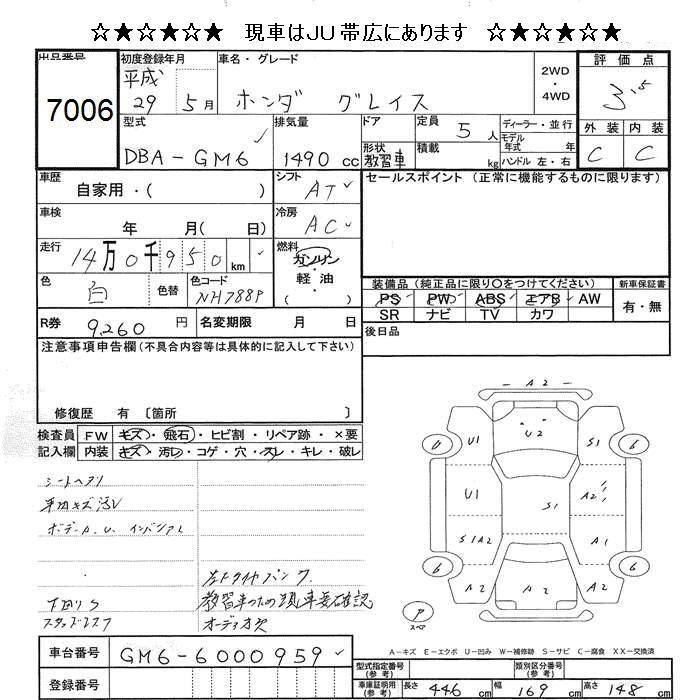 ☆★☆★☆★ 現車はJU帯広にあります ☆★☆★☆★
出品番号
7006
初度登録年月
平成
29 5月
車名・グレード
ホンダ グレイス
2WD
・
4WD
評価点
3.5
外装 内装
C C
型式
DBA-GM6
排気量
1490 cc
ドア
形状
教習車
定員 5 人
積載 kg
ディーラー・並行
モデル
年式 年
ハンドル 左・右
車歴
自家用・( )
シフト
AT
車検
年 月( 日)
冷房
AC
走行
14万0千950 km
燃料
ガソリン
軽油
( )
色
白
色替
色コード
NH788P
R券 9,260 円
名変期限 月 日
セールスポイント (正常に機能するものに限ります)
装備品 (純正品に限り〇をつけてください)
PS PW ABS エアB AW
SR ナビ TV カワ
新車保証書
有・無
後日品
注意事項申告欄(不具合内容等は具体的に記入して下さい)
修復歴 有 〔箇所 〕
検査員
記入欄
FW キズ・飛石・ヒビ割・リペア跡・×要
内装 キズ・汚レ・コゲ・穴・スレ・キレ・破レ
シートヘタリ
車内キズ汚レ
下回りS
スタッドレス
左トライヤパンク
教習車のため現車要確認
オーディオ欠
A2
U2
U1
S1
6
6
U1
S1
A2
S1A2
A1
6
6
A2
A2
A2
ア
スペア
A-キズ E-エクボ U-凹み W-補修跡 S-サビ C-腐食 XX-交換済
車台番号
GM6-6000959
登録番号
型式指定番号
(参考)
類別区分番号
(参考)
車庫証明用
(参考)
長さ 446 cm
幅 169 cm
高さ 148 cm